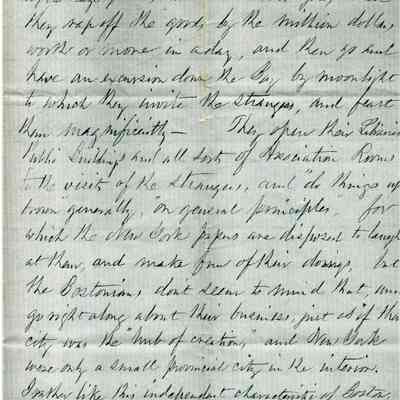 they rap off the goods by the million dollars
worth or more in a day, and then go and
have an excursion down the Bay by moonlight
to which they invite the strangers, and feast
them magnificently — They open their Libraries
Public Buildings and all sorts of Association Rooms
to the visits of the strangers, and "do things up
brown" generally, "on general principles," for
which the New York papers are disposed to laugh
at them, and make fun of their doings, but
the Bostonians dont seem to mind that, and
go right along about their business, just as if that
city was the "hub of creation," and New York
were only a small provincial city in the interior.
I rather like this independent characteristic of Boston,